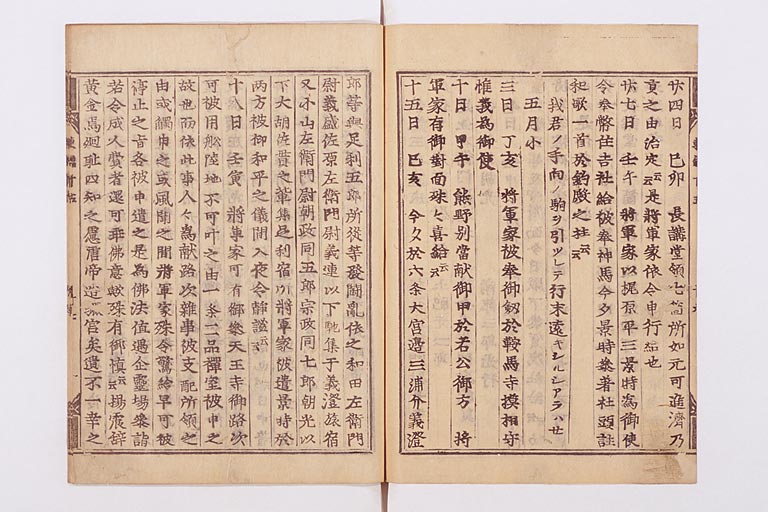 廿四日 己卯 長講堂領七箇所如元可進済乃
貢之由治定云云是将軍家依令申行給也
廿七日 壬午 将軍家以梶原平三景時為御使
令奉幣住吉社給被奉神馬今夕景時参著社頭註
和歌一首於釣殿之柱云云
我君ノ手向ノ駒ヲ引ツレテ行末遠キシルシアラハセ
五月小
三日 丁亥 将軍家被奉御釼於鞍馬寺摸相守
惟義為御使
十日 甲午 熊野別当献御甲於若公御方 将
軍家有御対面殊被喜給云云
十五日 己亥 今夕於六条大宮辺三浦介義澄
郎等与足利五郎所従等発闘乱依之和田左衛門
尉義盛佐原左衛門尉義連以下馳集于義澄旅宿
又小山左衛門尉朝政同五郎宗政同七郎朝光以
下大胡佐貫之輩集足利宿所将軍家被遣景時於
両方被仰和平之儀間入夜令静謐云云
十八日 壬寅 将軍家可有御参天王寺御路次
可被用船陸地不可叶之由一条二品禅室被申之
故也而依此事人々為献路次雑事被支配所領之
由或触申之或風聞之間将軍家殊令驚給早可被
停止之旨各被申遣之是為仏法値遇企霊場参詣
若令成人費者還可乖仏意歟殊有御慎云云揚震辞
黄金馬廻恥四知之愚唐帝遊孤宮矣遺不一幸之